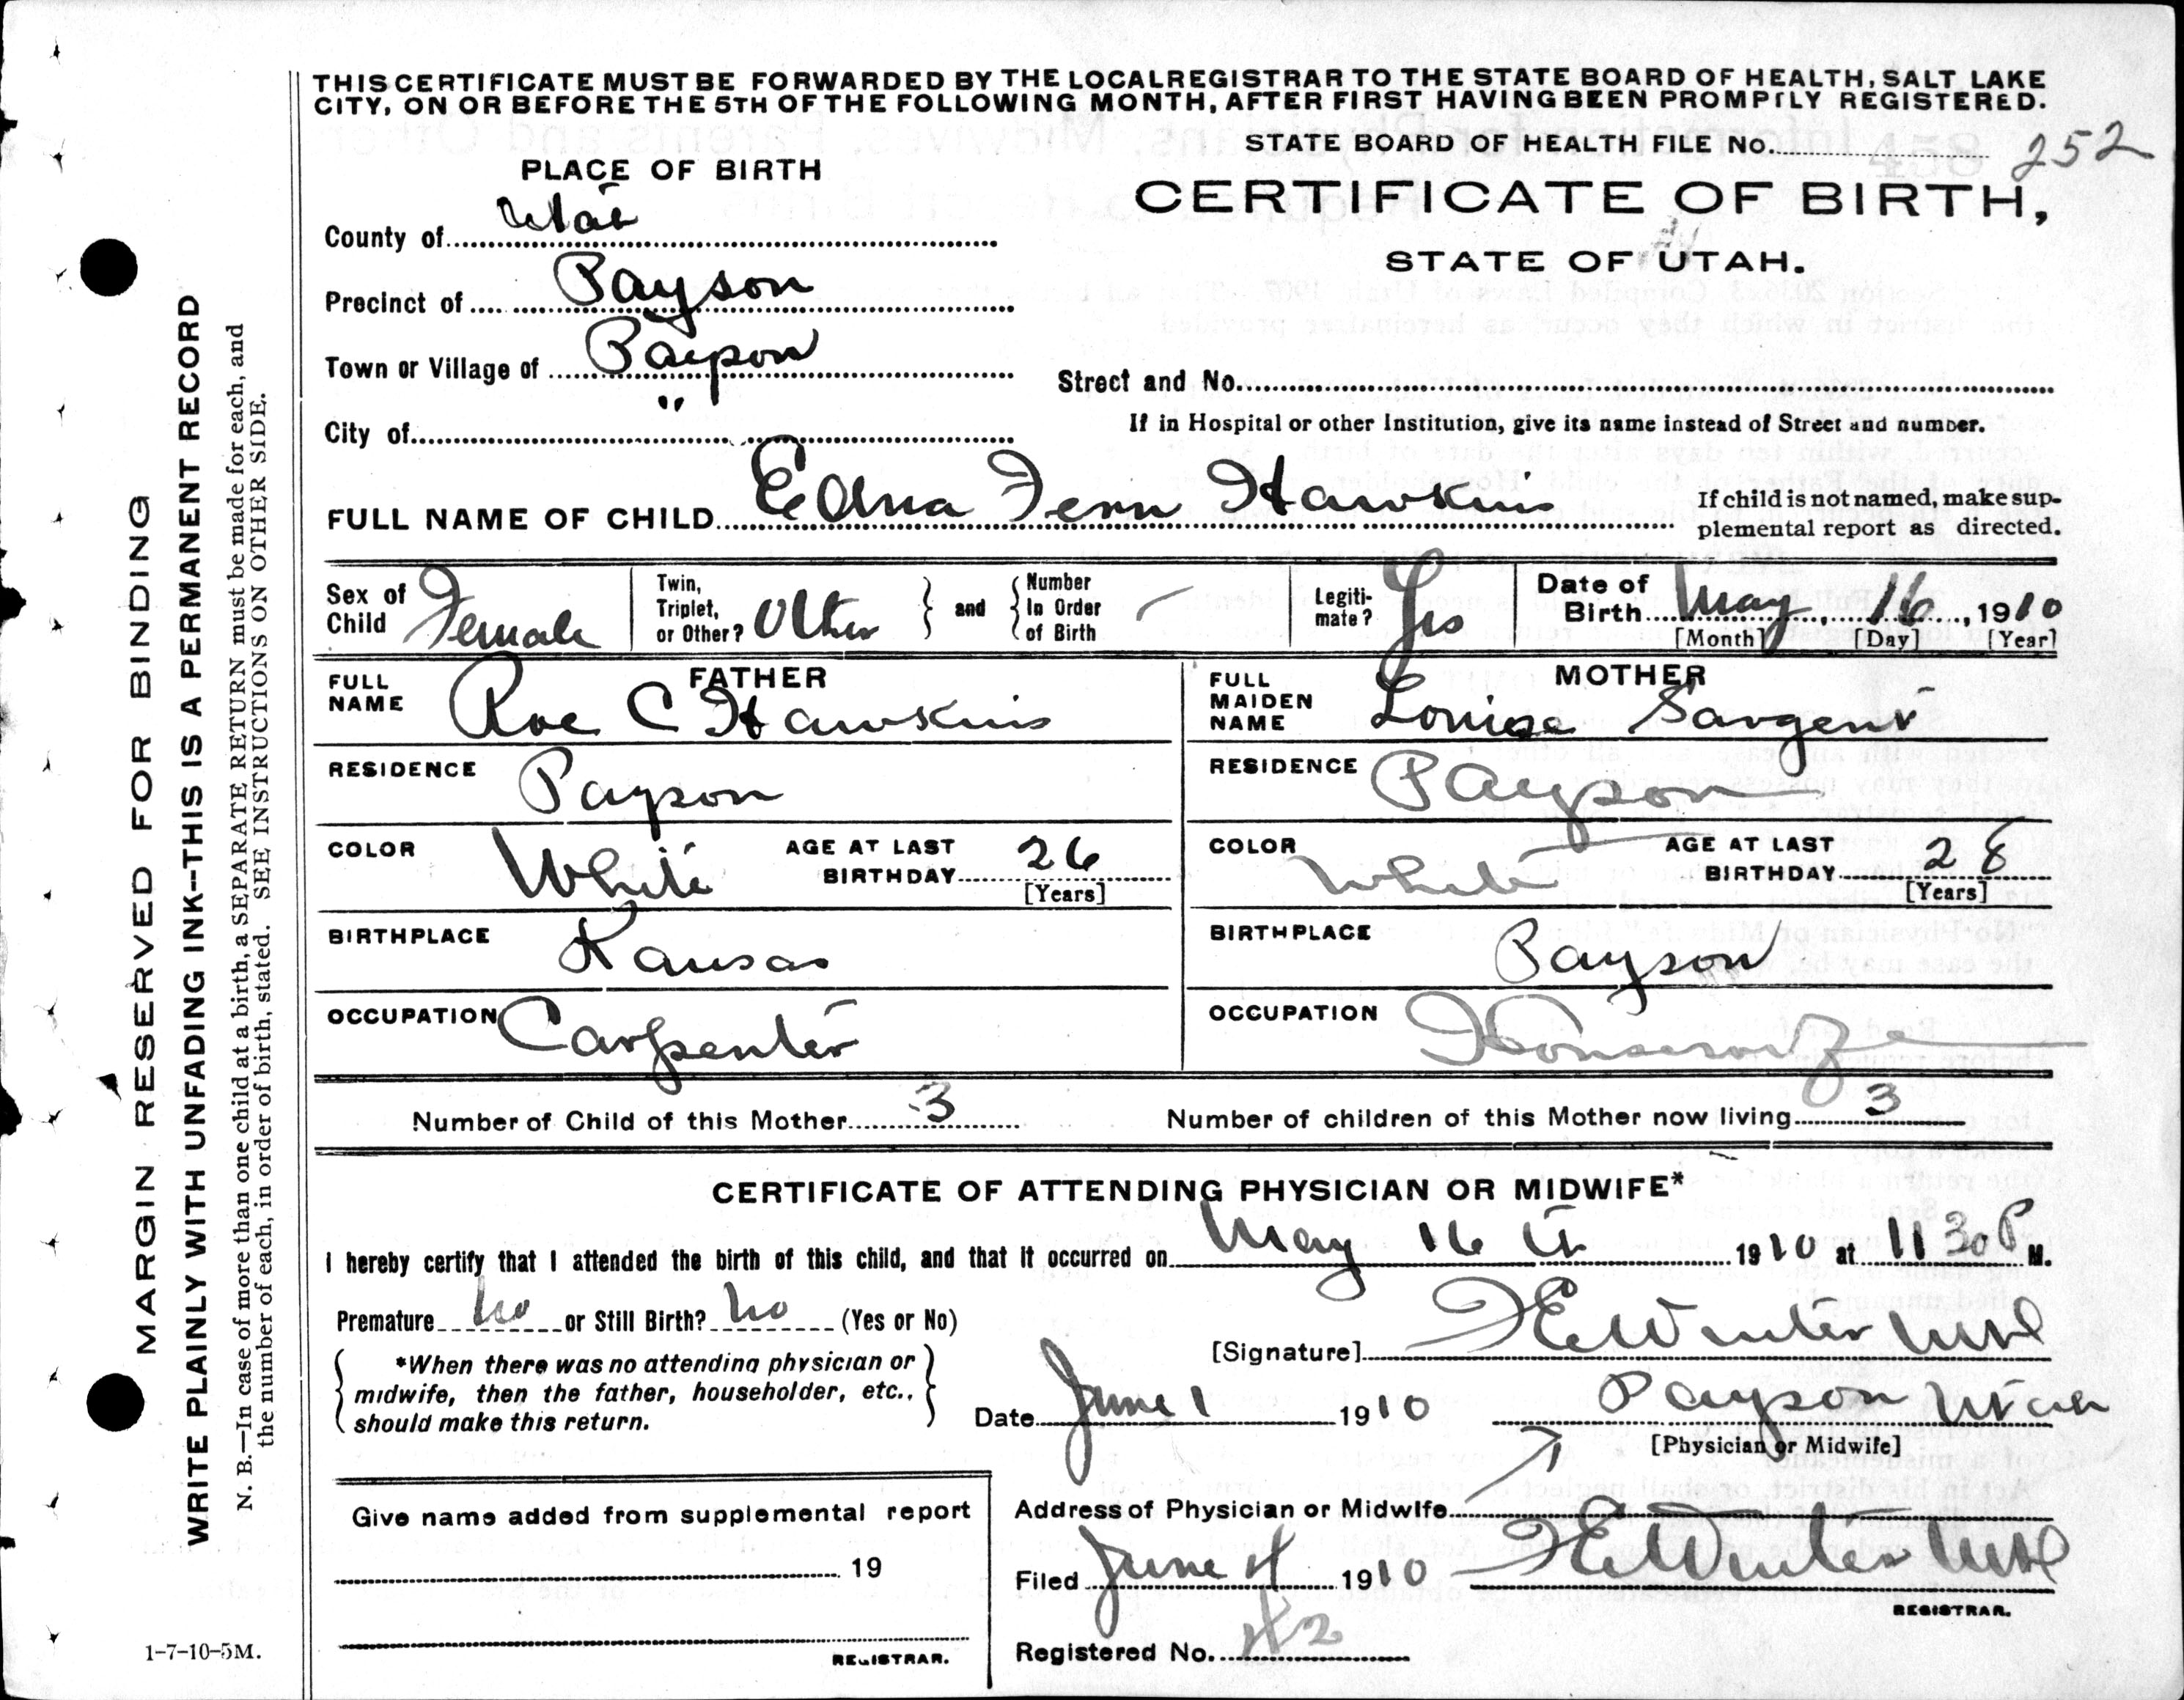 THIS CERTIFICATE MUST BE FORWARDED BY THE LOCAL REGISTRAR TO THE STATE BOARD OF HEALTH, SALT LAKE
CITY, ON OR BEFORE THE 5TH OF THE FOLLOWING MONTH, AFTER FIRST HAVING BEEN PROMPTLY REGISTERED.
STATE BOARD OF HEALTH FILE No. 252
PLACE OF BIRTH
CERTIFICATE OF BIRTH,
STATE OF UTAH.
County of Utah
Precinct of Payson
Town or Village of Payson
Street and No.
City of "
If in Hospital or other Institution, give its name instead of Street and number.
FULL NAME OF CHILD Edna Fern Hawkins
If child is not named, make sup-
plemental report as directed.
Sex of Child Female
Twin, Triplet, or Other? Other
and Number In Order of Birth –
Legiti-mate? Yes
Date of Birth May, 16, 1910
[Month] [Day] [Year]
FATHER
FULL NAME Roe C Hawkins
MOTHER
FULL MAIDEN NAME Louise Sargent
RESIDENCE Payson
RESIDENCE Payson
COLOR White AGE AT LAST BIRTHDAY 26 [Years]
COLOR White AGE AT LAST BIRTHDAY 28 [Years]
BIRTHPLACE Kansas
BIRTHPLACE Payson
OCCUPATION Carpenter
OCCUPATION Housewife
Number of Child of this Mother 3 Number of children of this Mother now living 3
CERTIFICATE OF ATTENDING PHYSICIAN OR MIDWIFE*
I hereby certify that I attended the birth of this child, and that it occurred on May 16th 1910 at 11 30 P M.
Premature no or Still Birth? no (Yes or No)
[Signature] Winter MD
*When there was no attending physician or
midwife, then the father, householder, etc.,
should make this return.
Date June 1 1910 Payson Utah
[Physician or Midwife]
Address of Physician or Midwife
Give name added from supplemental report
19
REGISTRAR.
Filed June 4 1910 Winter MD
REGISTRAR.
Registered No. 42
MARGIN RESERVED FOR BINDING
WRITE PLAINLY WITH UNFADING INK--THIS IS A PERMANENT RECORD
N. B.—In case of more than one child at a birth, a SEPARATE RETURN must be made for each, and
the number of each, in order of birth, stated. SEE INSTRUCTIONS ON OTHER SIDE.
1-7-10-5M.